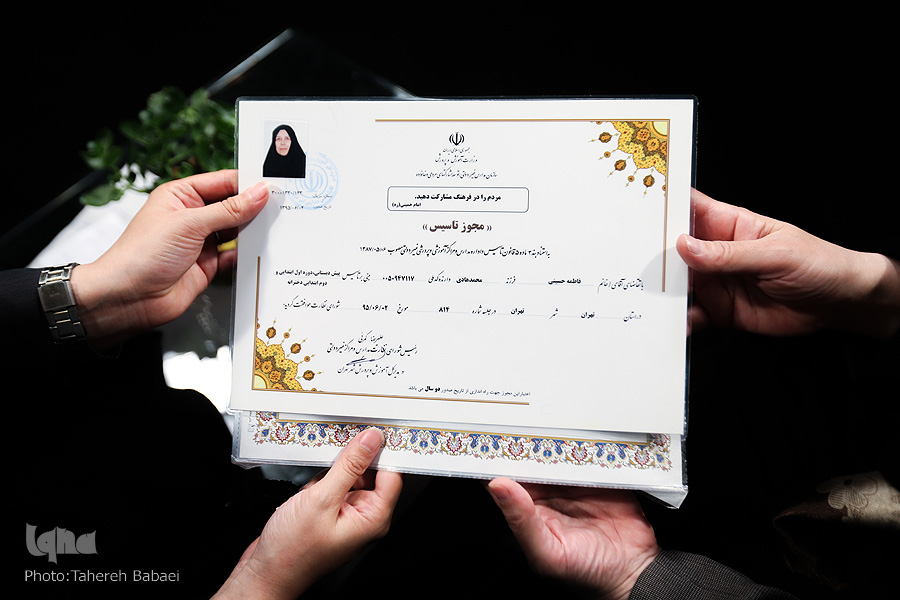 جمهوری اسلامی ایران
وزارت آموزش و پرورش
سازمان مدارس غیردولتی، توسعه مشارکت‌های مردمی و خانواده
۱۳۹۵/۰۶/۰۴
مردم را در فرهنگ مشارکت دهید.
امام خمینی(ره)
« مجوز تاسیس »
به استناد بند ۲ ماده ۵ قانون تاسیس و اداره مدارس و مراکز آموزشی و پرورشی غیردولتی مصوب ۱۳۸۷/۰۵/۰۶
با تقاضای آقای / خانم فاطمه حسینی فرزند محمدهادی دارنده کد ملی ۰۰۵۰۹۴۷۱۱۷ مبنی بر تاسیس پیش دبستانی،دوره اول ابتدایی و
دوم ابتدایی دخترانه
در استان تهران شهر تهران در جلسه شماره ۸۱۴ مورخ ۹۵/۰۶/۰۲ شورای نظارت موافقت گردید.
علیرضا
رئیس شورای نظارت مدارس و مراکز غیردولتی
و مدیرکل آموزش و پرورش شهر تهران
اعتبار این مجوز جهت راه اندازی از تاریخ صدور دو سال می باشد.
Iqna
Photo:Tahereh Babaei